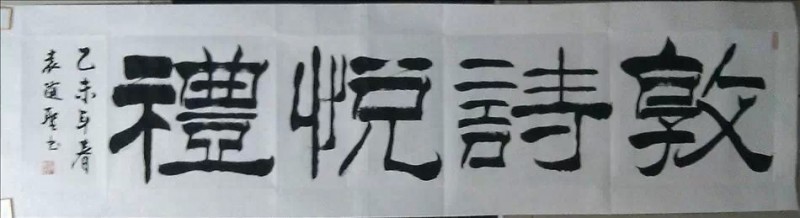 敦詩悅禮
乙未年春
袁道聖書